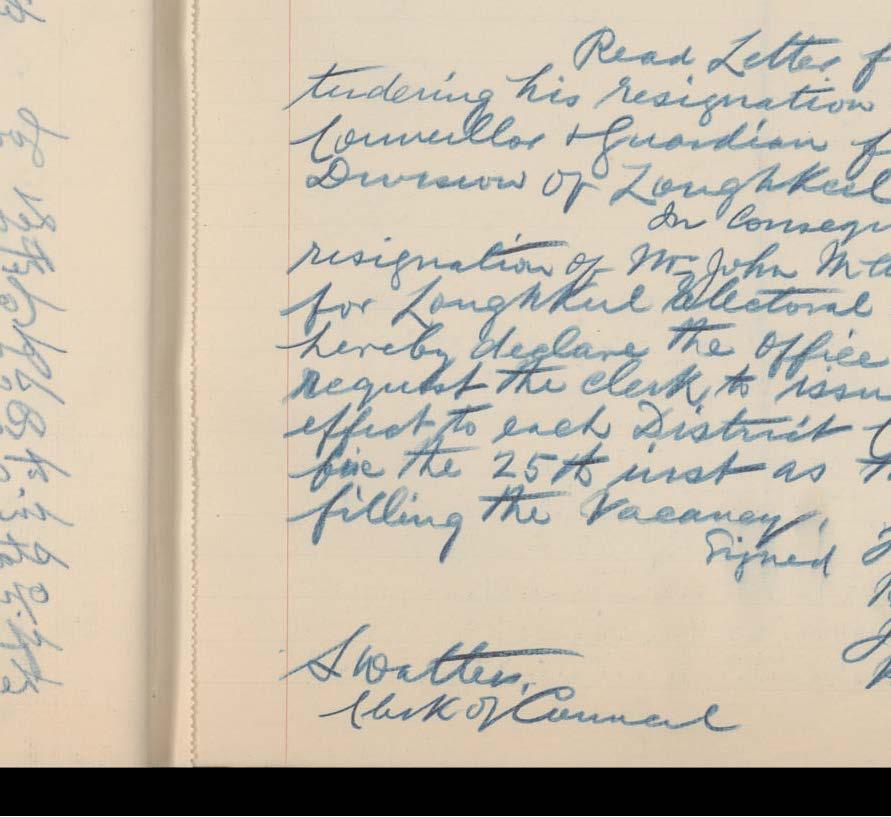 Read Letter f
tendering his resignation
Councillor & Guardian f
Division of Loughkeel
In Consequ
resignation of Mr John McC
for Loughkeel Electoral
hereby declare the office
request the clerk to issu
effect to each District C
fix the 25th inst as th
filling the Vacancy.
Signed
S Watters,
Clerk of Council